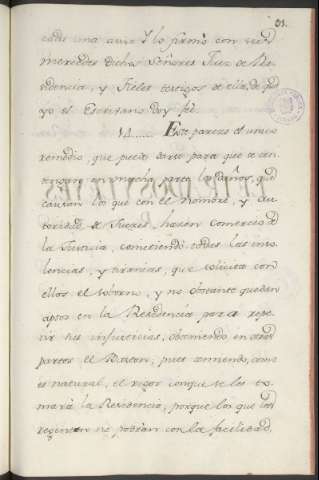 31.
cada una aviz. Y lo firmó con sus
mercedes dichos Señores Juez de Re-
sidencia, y Fieles testigos de ella, de que
yo el Escrivano doy fé.
14 Este parece el unico
remedio, que puede darse para que se
en mucha parte los daños, que
causan los que con el nombre, y Au-
toridad de Jueces, hacen comercio de
la Justicia, cometiendo todas las vio-
lencias, y tiranias, que solicita con
ellos el soborno, y no obstante quedan
aptos en la Residencia para repe-
tir sus injusticias, obteniendo en otras
partes el Baston, pues temiendo, como
es natural, el rigor con que se les to-
mará la Residencia, porque los que las
regentan no podrán con la facilidad